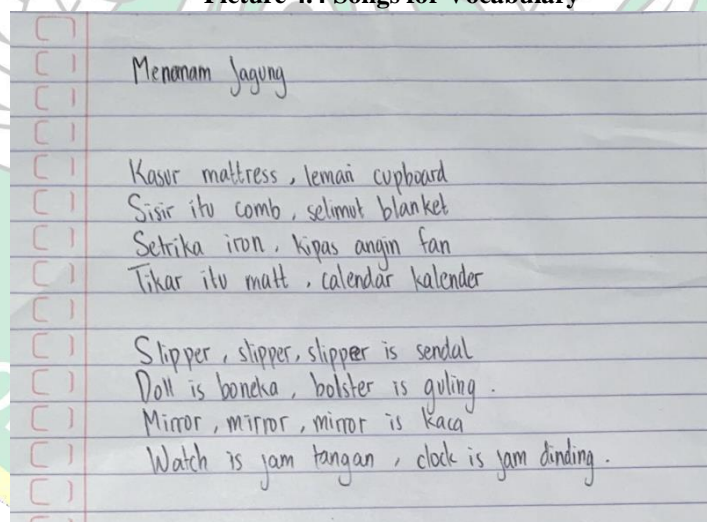 Picture 4.4 Songs for Vocabulary
Menanam Jagung
Kasur mattress, lemari cupboard
Sisir itu comb, selimut blanket
Setrika iron, kipas angin fan
Tikar itu matt, calendar kalender
Slipper, slipper, slipper is sendal
Doll is boneka, bolster is guling.
Mirror, mirror, mirror is kaca
Watch is jam tangan, clock is jam dinding.